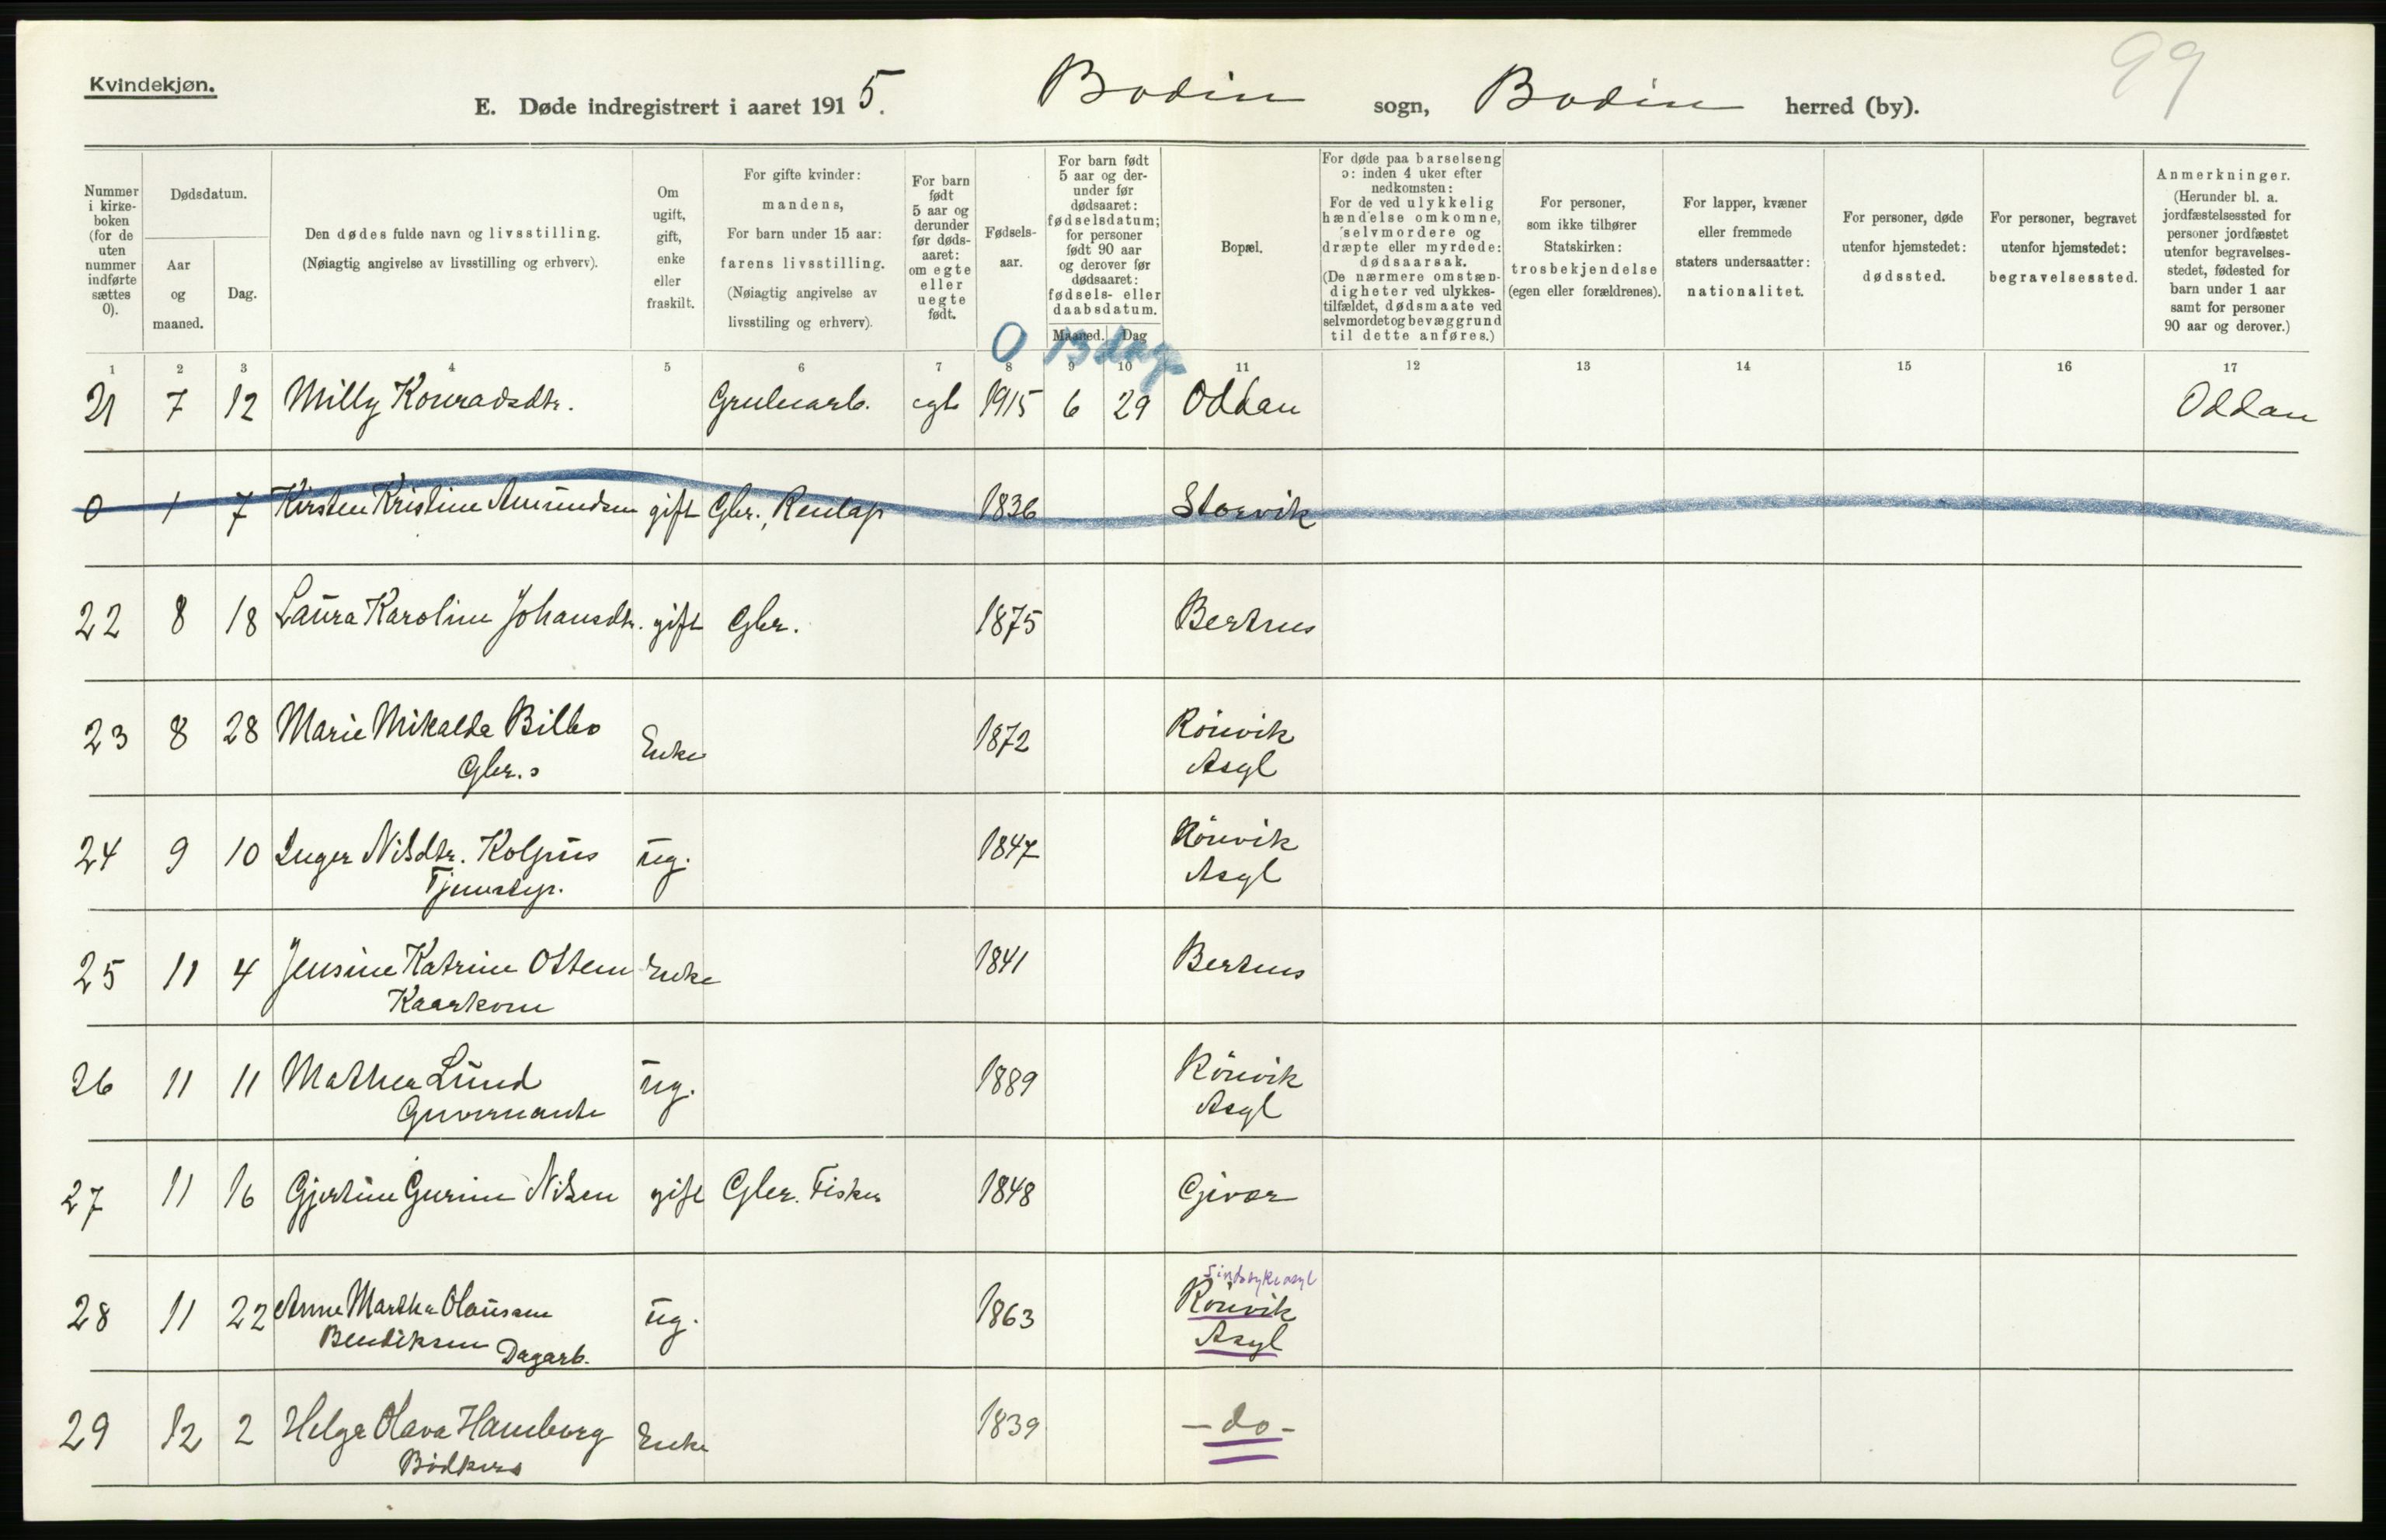 99
Kvindekjøn.
E. Døde indregistrert i aaret 1915. Bodin sogn, Bodin herred (by).
Nummer i kirke-boken (for de uten nummer indførte sættes 0).
Dødsdatum.
Aar og maaned.
Dag.
Den dødes fulde navn og livsstilling.
(Nøiagtig angivelse av livsstilling og erhverv).
Om ugift, gift, enke eller fraskilt.
For gifte kvinder: mandens,
For barn under 15 aar: farens livsstilling.
(Nøiagtig angivelse av livsstiling og erhverv).
For barn født 5 aar og derunder før døds-aaret: om egte eller uegte født.
Fødsels-aar.
For barn født 5 aar og der-under før dødsaaret: fødselsdatum; for personer født 90 aar og derover før dødsaaret: fødsels- eller daabsdatum.
Maaned. Dag
Bopæl.
For døde paa barselseng ɔ: inden 4 uker efter nedkomsten:
For de ved ulykkelig hændelse omkomne, selvmordere og dræpte eller myrdede: dødsaarsak.
(De nærmere omstæn-digheter ved ulykkes-tilfældet, dødsmaate ved selvmordet og bevæggrund til dette anføres.)
For personer, som ikke tilhører Statskirken: trosbekjendelse (egen eller forældrenes).
For lapper, kvæner eller fremmede staters undersaatter: nationalitet.
For personer, døde utenfor hjemstedet: dødssted.
For personer, begravet utenfor hjemstedet: begravelsessted.
Anmerkninger.
(Herunder bl. a. jordfæstelsessted for personer jordfæstet utenfor begravelses-stedet, fødested for barn under 1 aar samt for personer 90 aar og derover.)
0 13 dage
1 2 3 4 5 6 7 8 9 10 11 12 13 14 15 16 17
21 7 12 Milly Konradsdtr. Grubearb. egte 1915 6 29 Oddan Oddan
0 1 7 Kirsten Kristine Amundsen gift Gbr., 1836 Storvik
22 8 18 Laura Karoline Johansdtr. gift Gbr. 1875 Bertnes
23 8 28 Marie Mikalda Bilbo Enke 1872 Rönvik
Gbr.s Asyl
24 9 10 Inger Nilsdtr. ug. 1847 Rönvik
Tjenestep. Asyl
25 11 4 Jensine Katrine Ottem Enke 1841 Bertnes
Kaarkone
26 11 11 Mathea Lund ug. 1889 Rönvik
Guvernante Asyl
27 11 16 Gjertine Gurine Nilsen gift Gbr. Fisker 1848 Givær
Sindsykeasyl
28 11 22 Anne Martha Olausen ug. 1863 Rönvik
Bendiksen Dagarb. Asyl
29 12 2 Helga Olava Hamborg Enke 1839 - do -
Bödkers